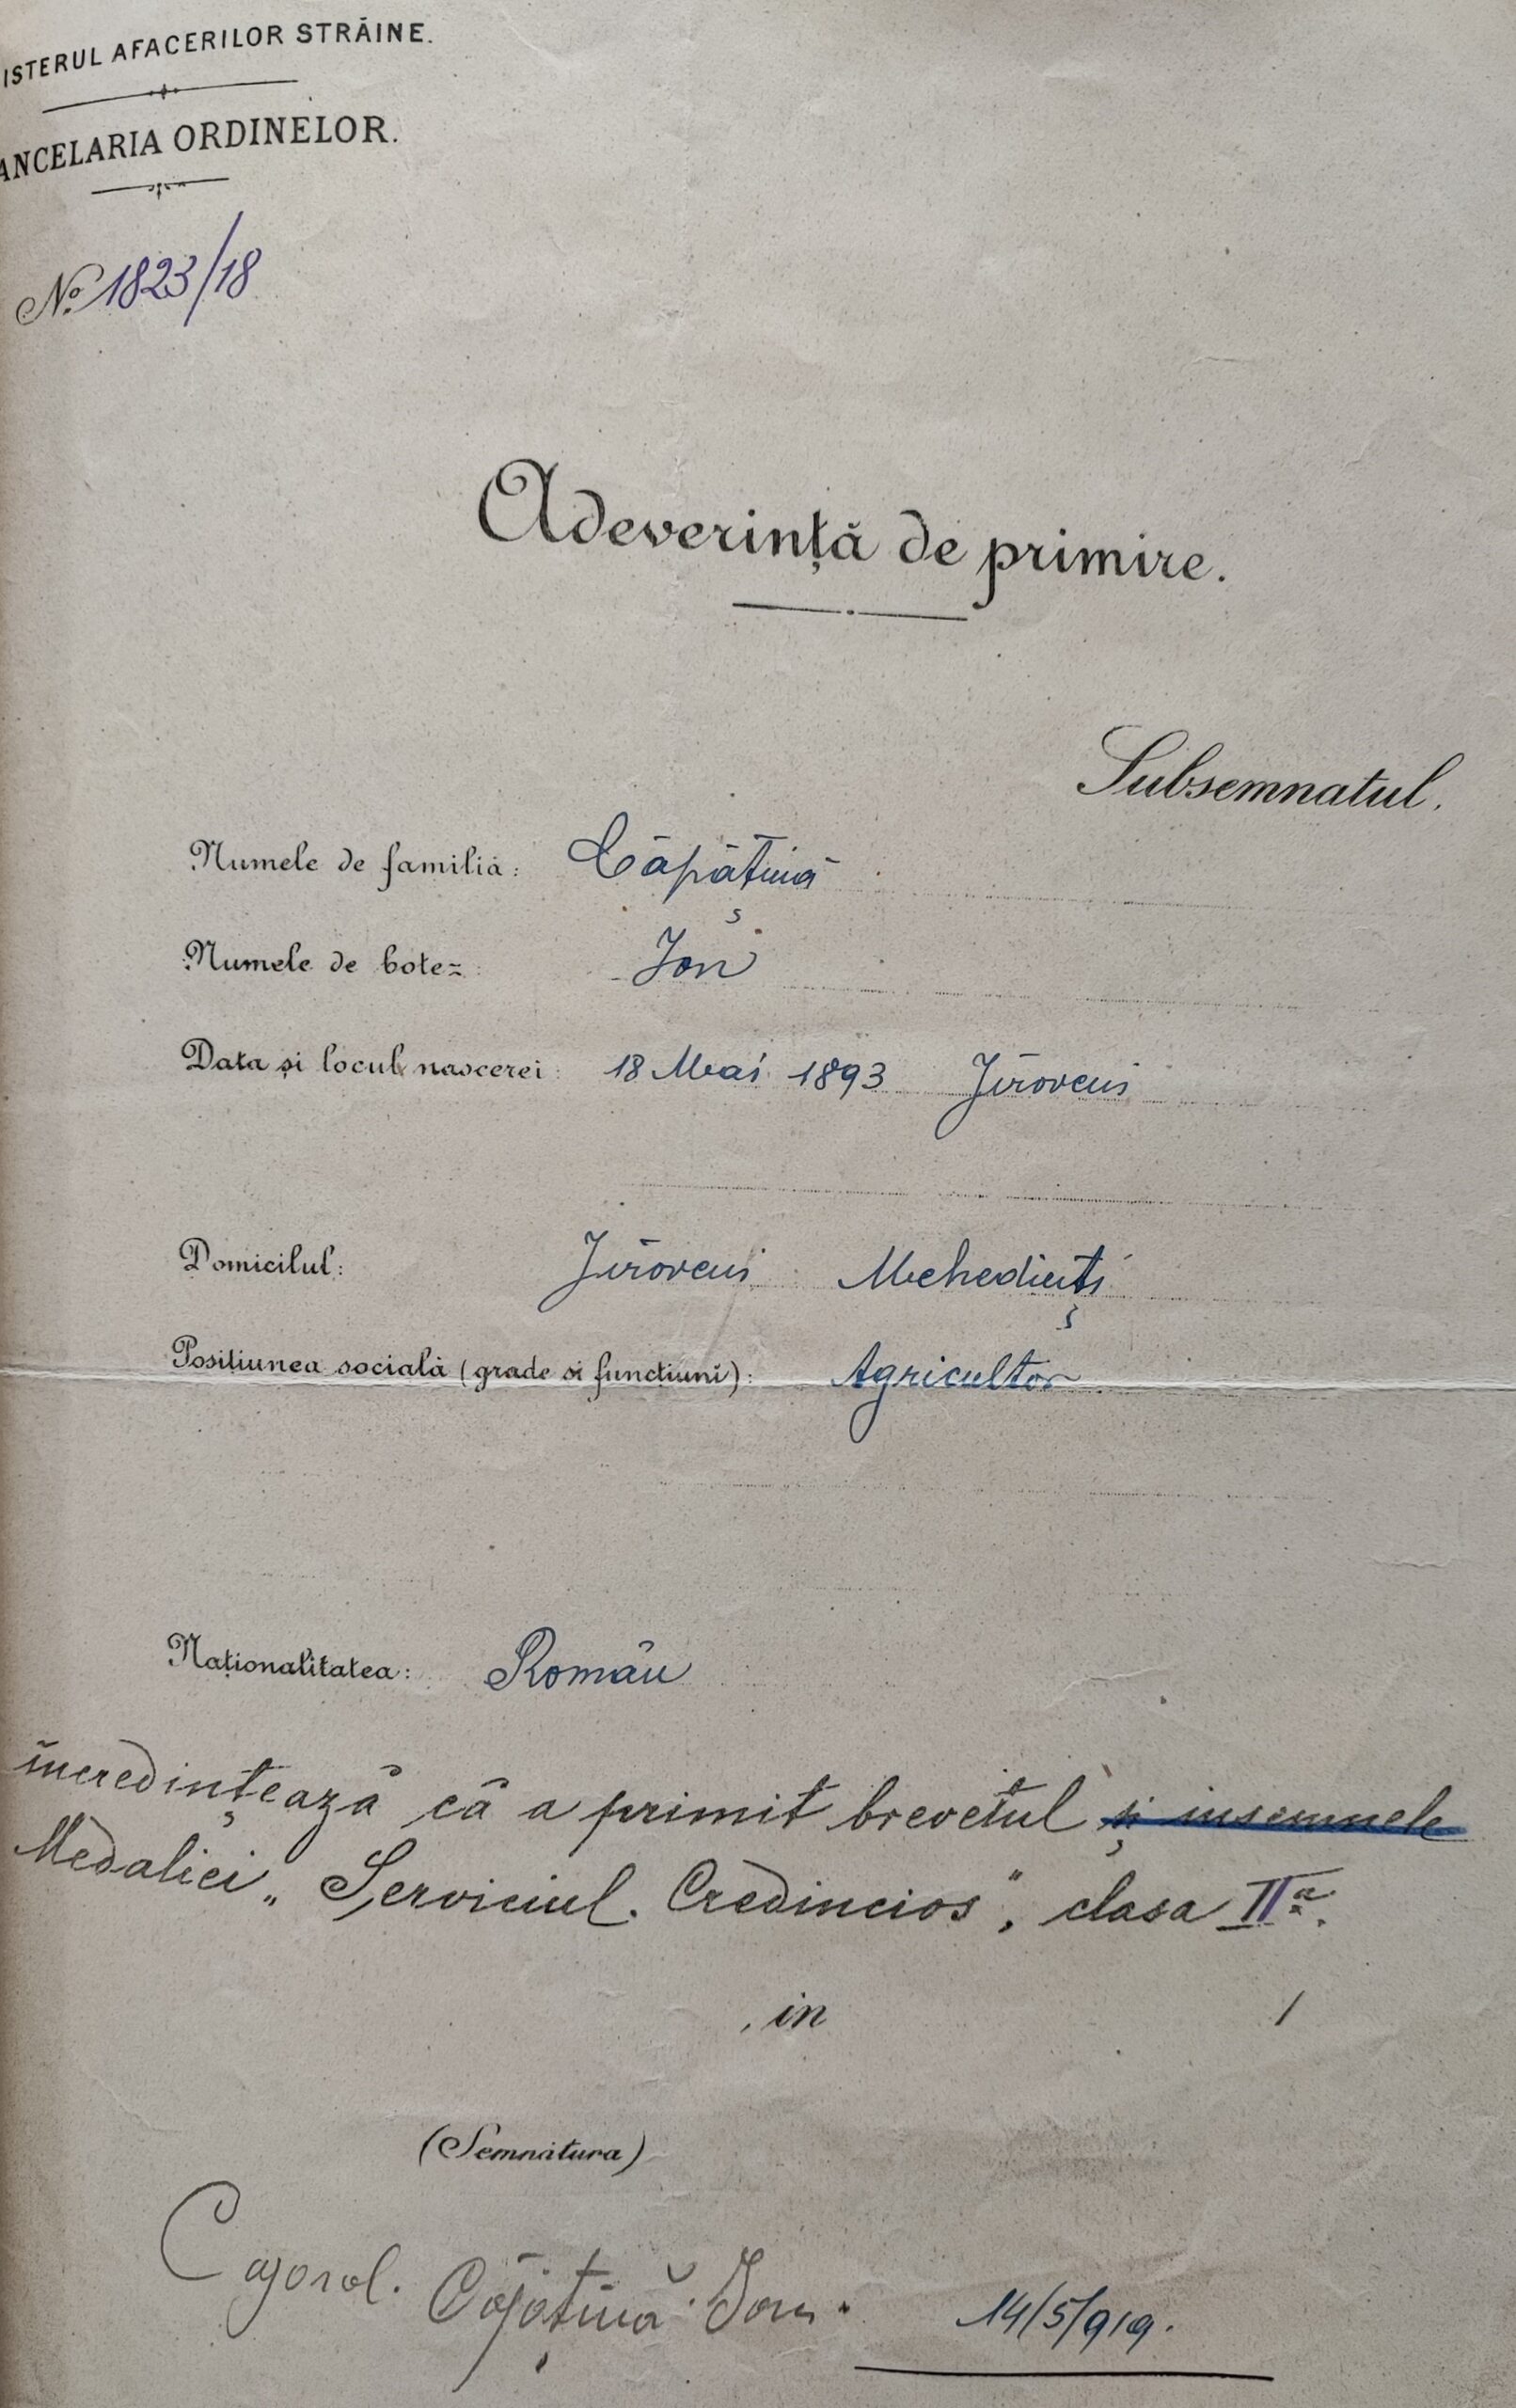 ISTERUL AFACERILOR STRĂINE.
ANCELARIA ORDINELOR.
No. 1823/18
Adeverință de primire.
Subsemnatul.
Numele de familiă: Căpățină
Numele de botez: Ion
Data și locul nascerei: 18 Mai 1893 Jirovcui
Domicilul: Jirovcui Mehedinți
Positiunea socială (grade si funcțiuni): Agricultor
Naționalitatea: Român
încredințează că a primit brevetul și insemnele
Medaliei „Serviciul Credincios", clasa IIa.
, in
(Semnătura)
Caporal. Căpățină Ion.
14/5/919.